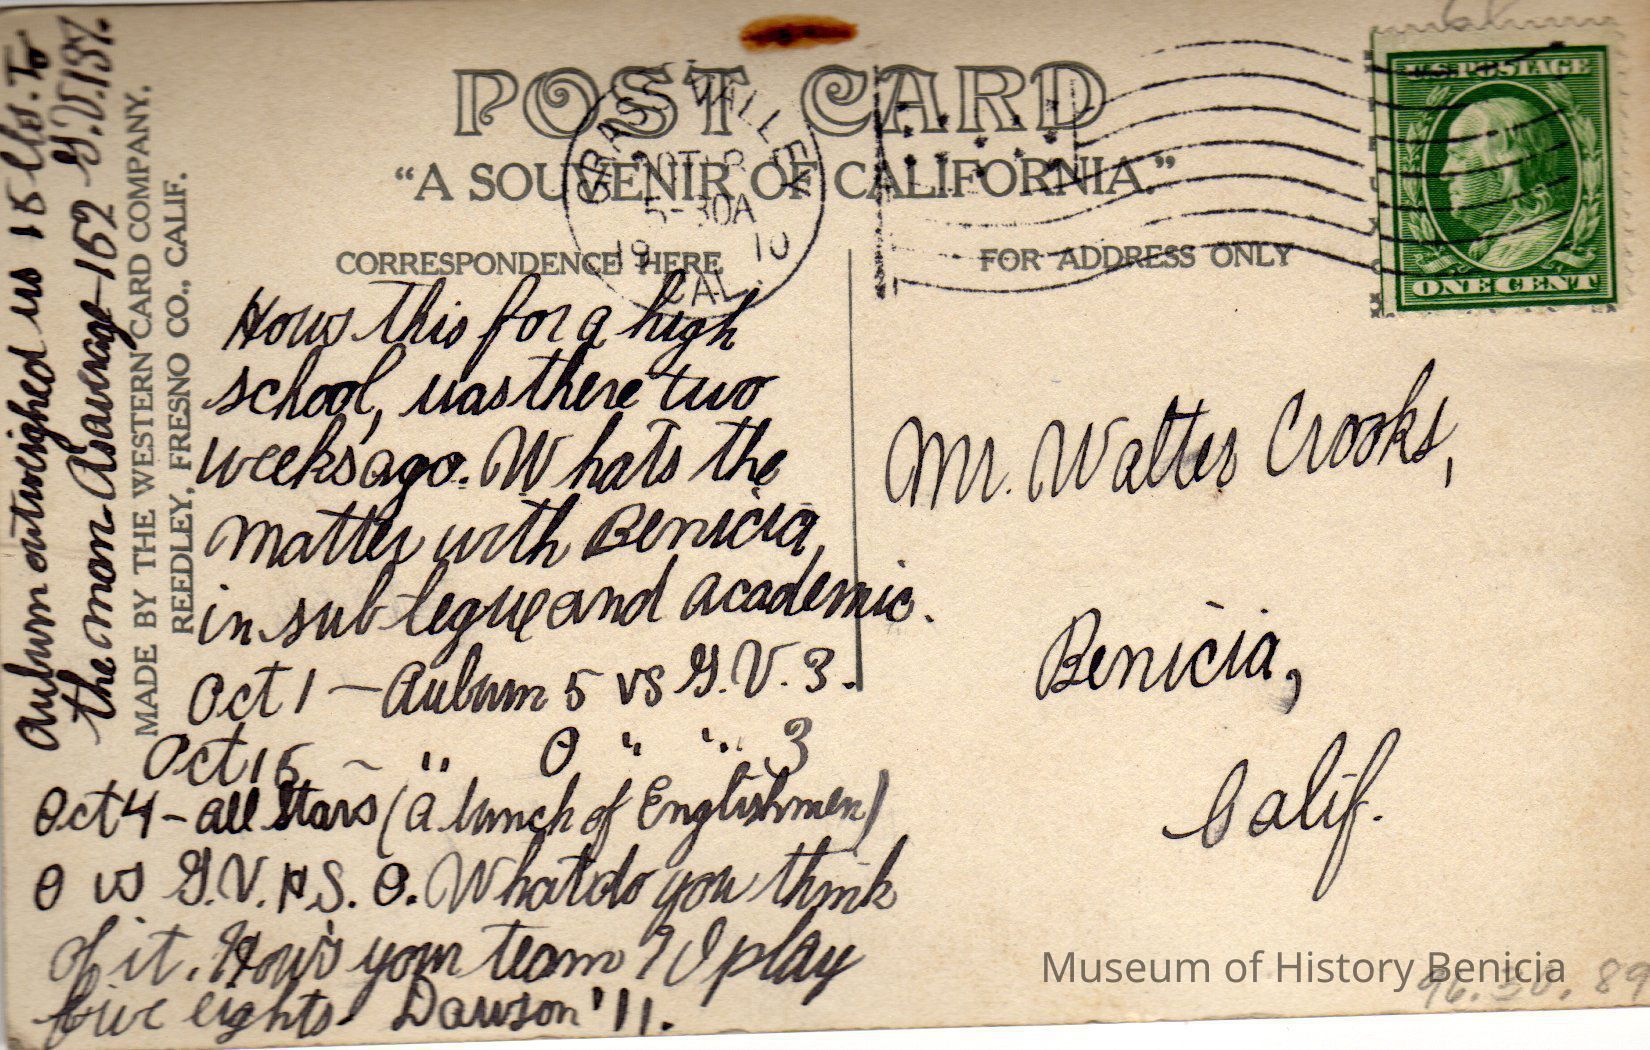 POST CARD
"A SOUVENIR OF CALIFORNIA."
GRASS VALLEY
5-30A
19 10
CAL.
U.S. POSTAGE
ONE CENT
CORRESPONDENCE HERE
FOR ADDRESS ONLY
Hows this for a high
school, was there two
weeks ago. Whats the
matter with Benicia,
in sub legue and academic.
Oct 1 — Auburn 5 vs G.V. 3.
Oct 15 — " 0 " " 3
Oct 4 - all Stars (a bunch of Englishmen)
0 vs G.V.H.S. 0. What do you think
of it. How's your team? I play
five eights. Dawson '11.
Auburn outweighed us 15 lbs. to
the man. As average 152 G.V. 137.
MADE BY THE WESTERN CARD COMPANY,
REEDLEY, FRESNO CO., CALIF.
Mr. Walter Crooks,
Benicia,
Calif.
Museum of History Benicia
96.30.89